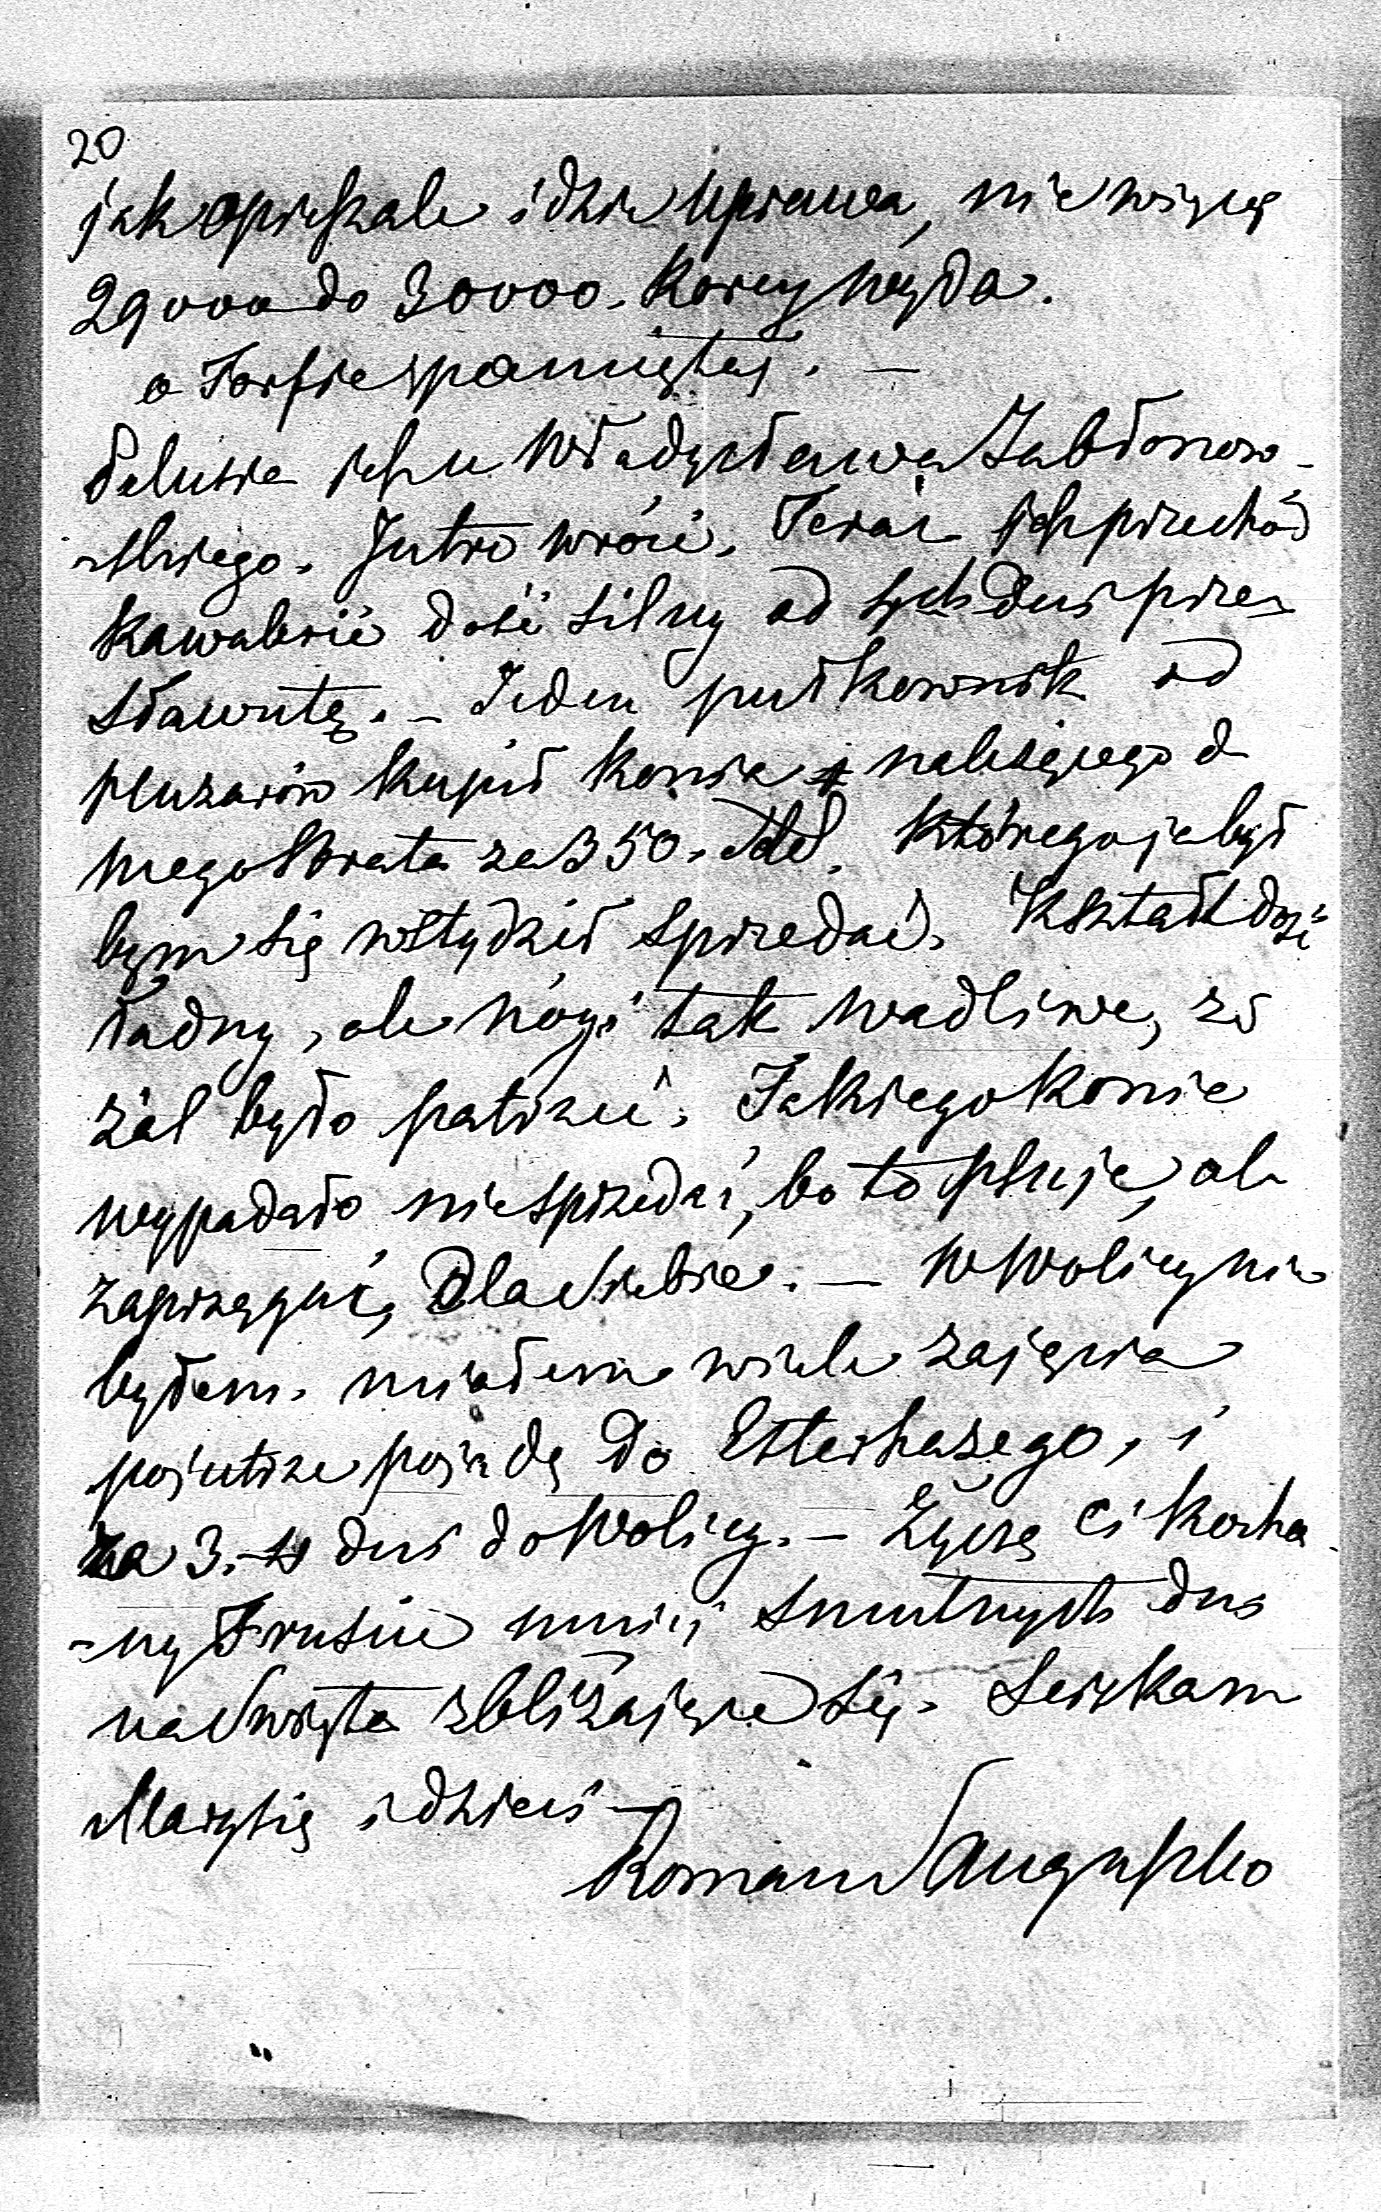 20
jak opieszale idzie uprawa, nie więcej
29000 do 30000. korcy wyda.
o Torfie pamiętaj. —
jest u Władysława Jabłonow-
-skiego. Jutro wróci. Teraz jest przechód
kawalerii dość silny od tych dni przez
Sławutę. – Jeden pułkownik od
huzarów kupił konia należącego do
mego brata za 350. którego ja był
bym się wstydził sprzedać. Kształt dość
ładny, ale nogi tak wadliwe, że
żal było patrzeć. Takiego konia
wypadało nie sprzedać, bo to psuje, ale
zaprzęgnąć, dla siebie. — W Wolicy nie
byłem. miałem wiele zajęcia
pojutrze pojadę do Esterhazego, i
za 3. dni do Wolicy. – Życzę Ci Kocha-
-ny Frusiu mniej smutnych dni
na Święta zbliżające się. Ściskam
Marysię i dzieci –
Roman Sanguszko